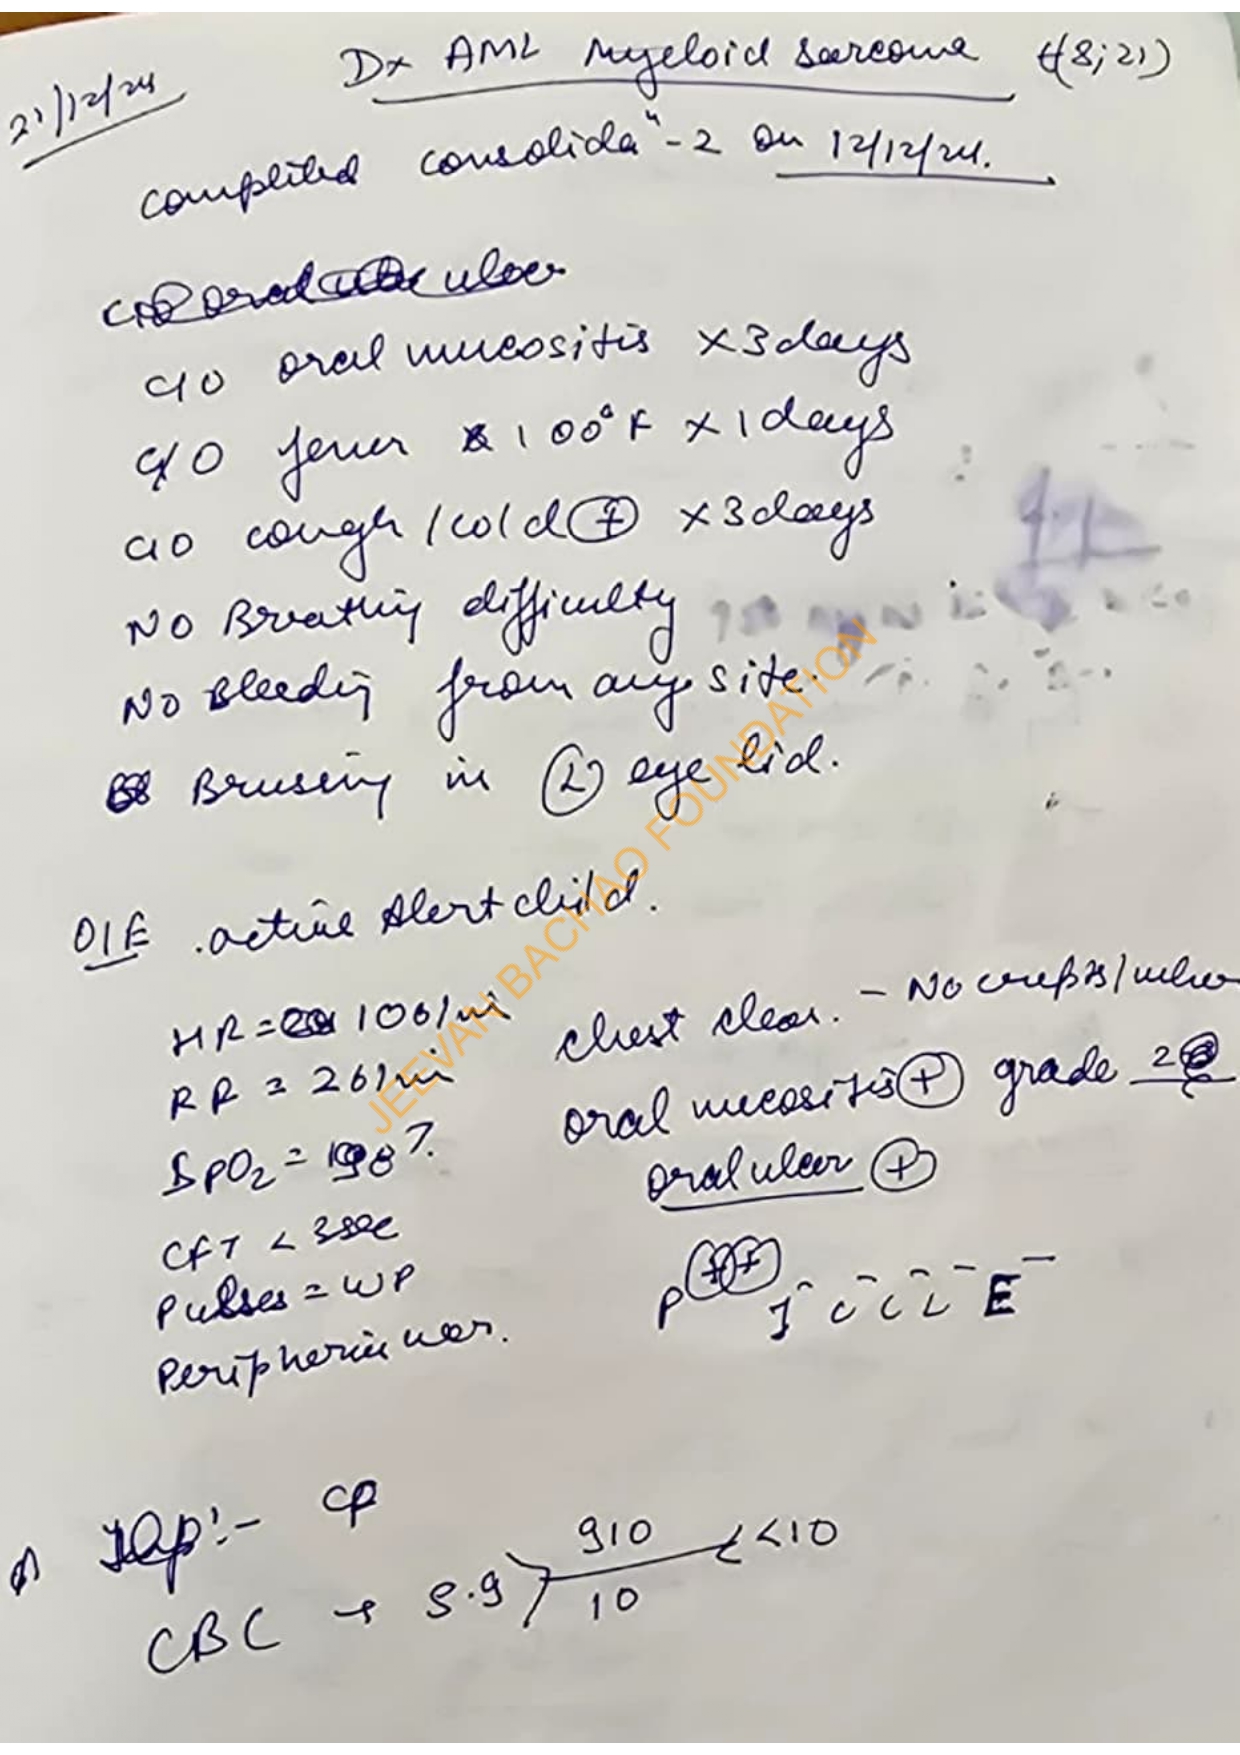 21/12/24
Dx AML Myeloid Sarcoma t(8;21)
complited consolidaⁿ-2 on 12/12/24.
c/o oral ulcer
c/o oral mucositis x3days
c/o fever 100°F x1days
c/o cough/cold (+) x3days
NO Breathing difficulty
NO Bleeding from any site.
Brusing in (L) eye lid.
O/E .active Alert child.
HR = 106/mi
RR = 26/mi
SpO2 = 98%
CFT < 3sec
Pulses = WP
Peripheries war.
chest clear. - No crepts/
oral mucositis (+) grade 2
oral ulcer (+)
P (+)(+) J - C - C - L - E -
Imp:- CP
CBC → 8.9 910 <10
10
JEEVAN BACHAO FOUNDATION